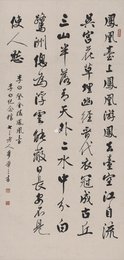 鳳凰臺上鳳凰遊鳳去臺空江自流
吳宮花草埋幽徑晉代衣冠成古丘
三山半落青天外二水中分白
鷺洲總為浮雲能蔽日長安不見
使人愁
李白登金陵鳳凰臺